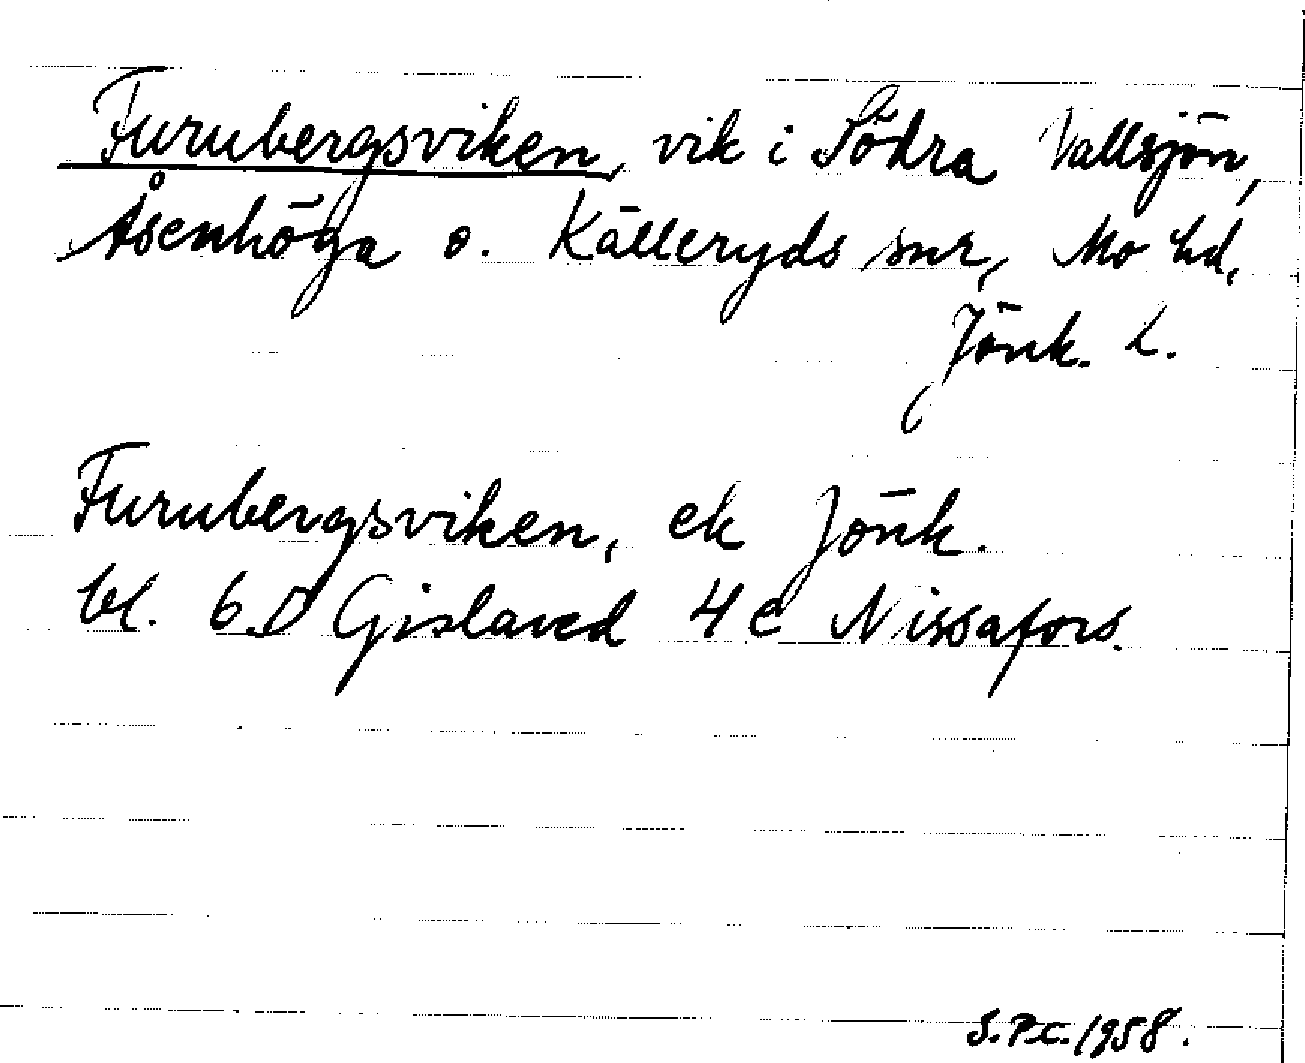 Furubergsviken, vik i Södra Vallsjön,
Åsenhöga o. Källeryds snr, Mo hd,
Jönk. L.
Furubergsviken, ek Jönk.
bl. 6D Gislaved 4e Nissafors.
S.P.C. 1958.